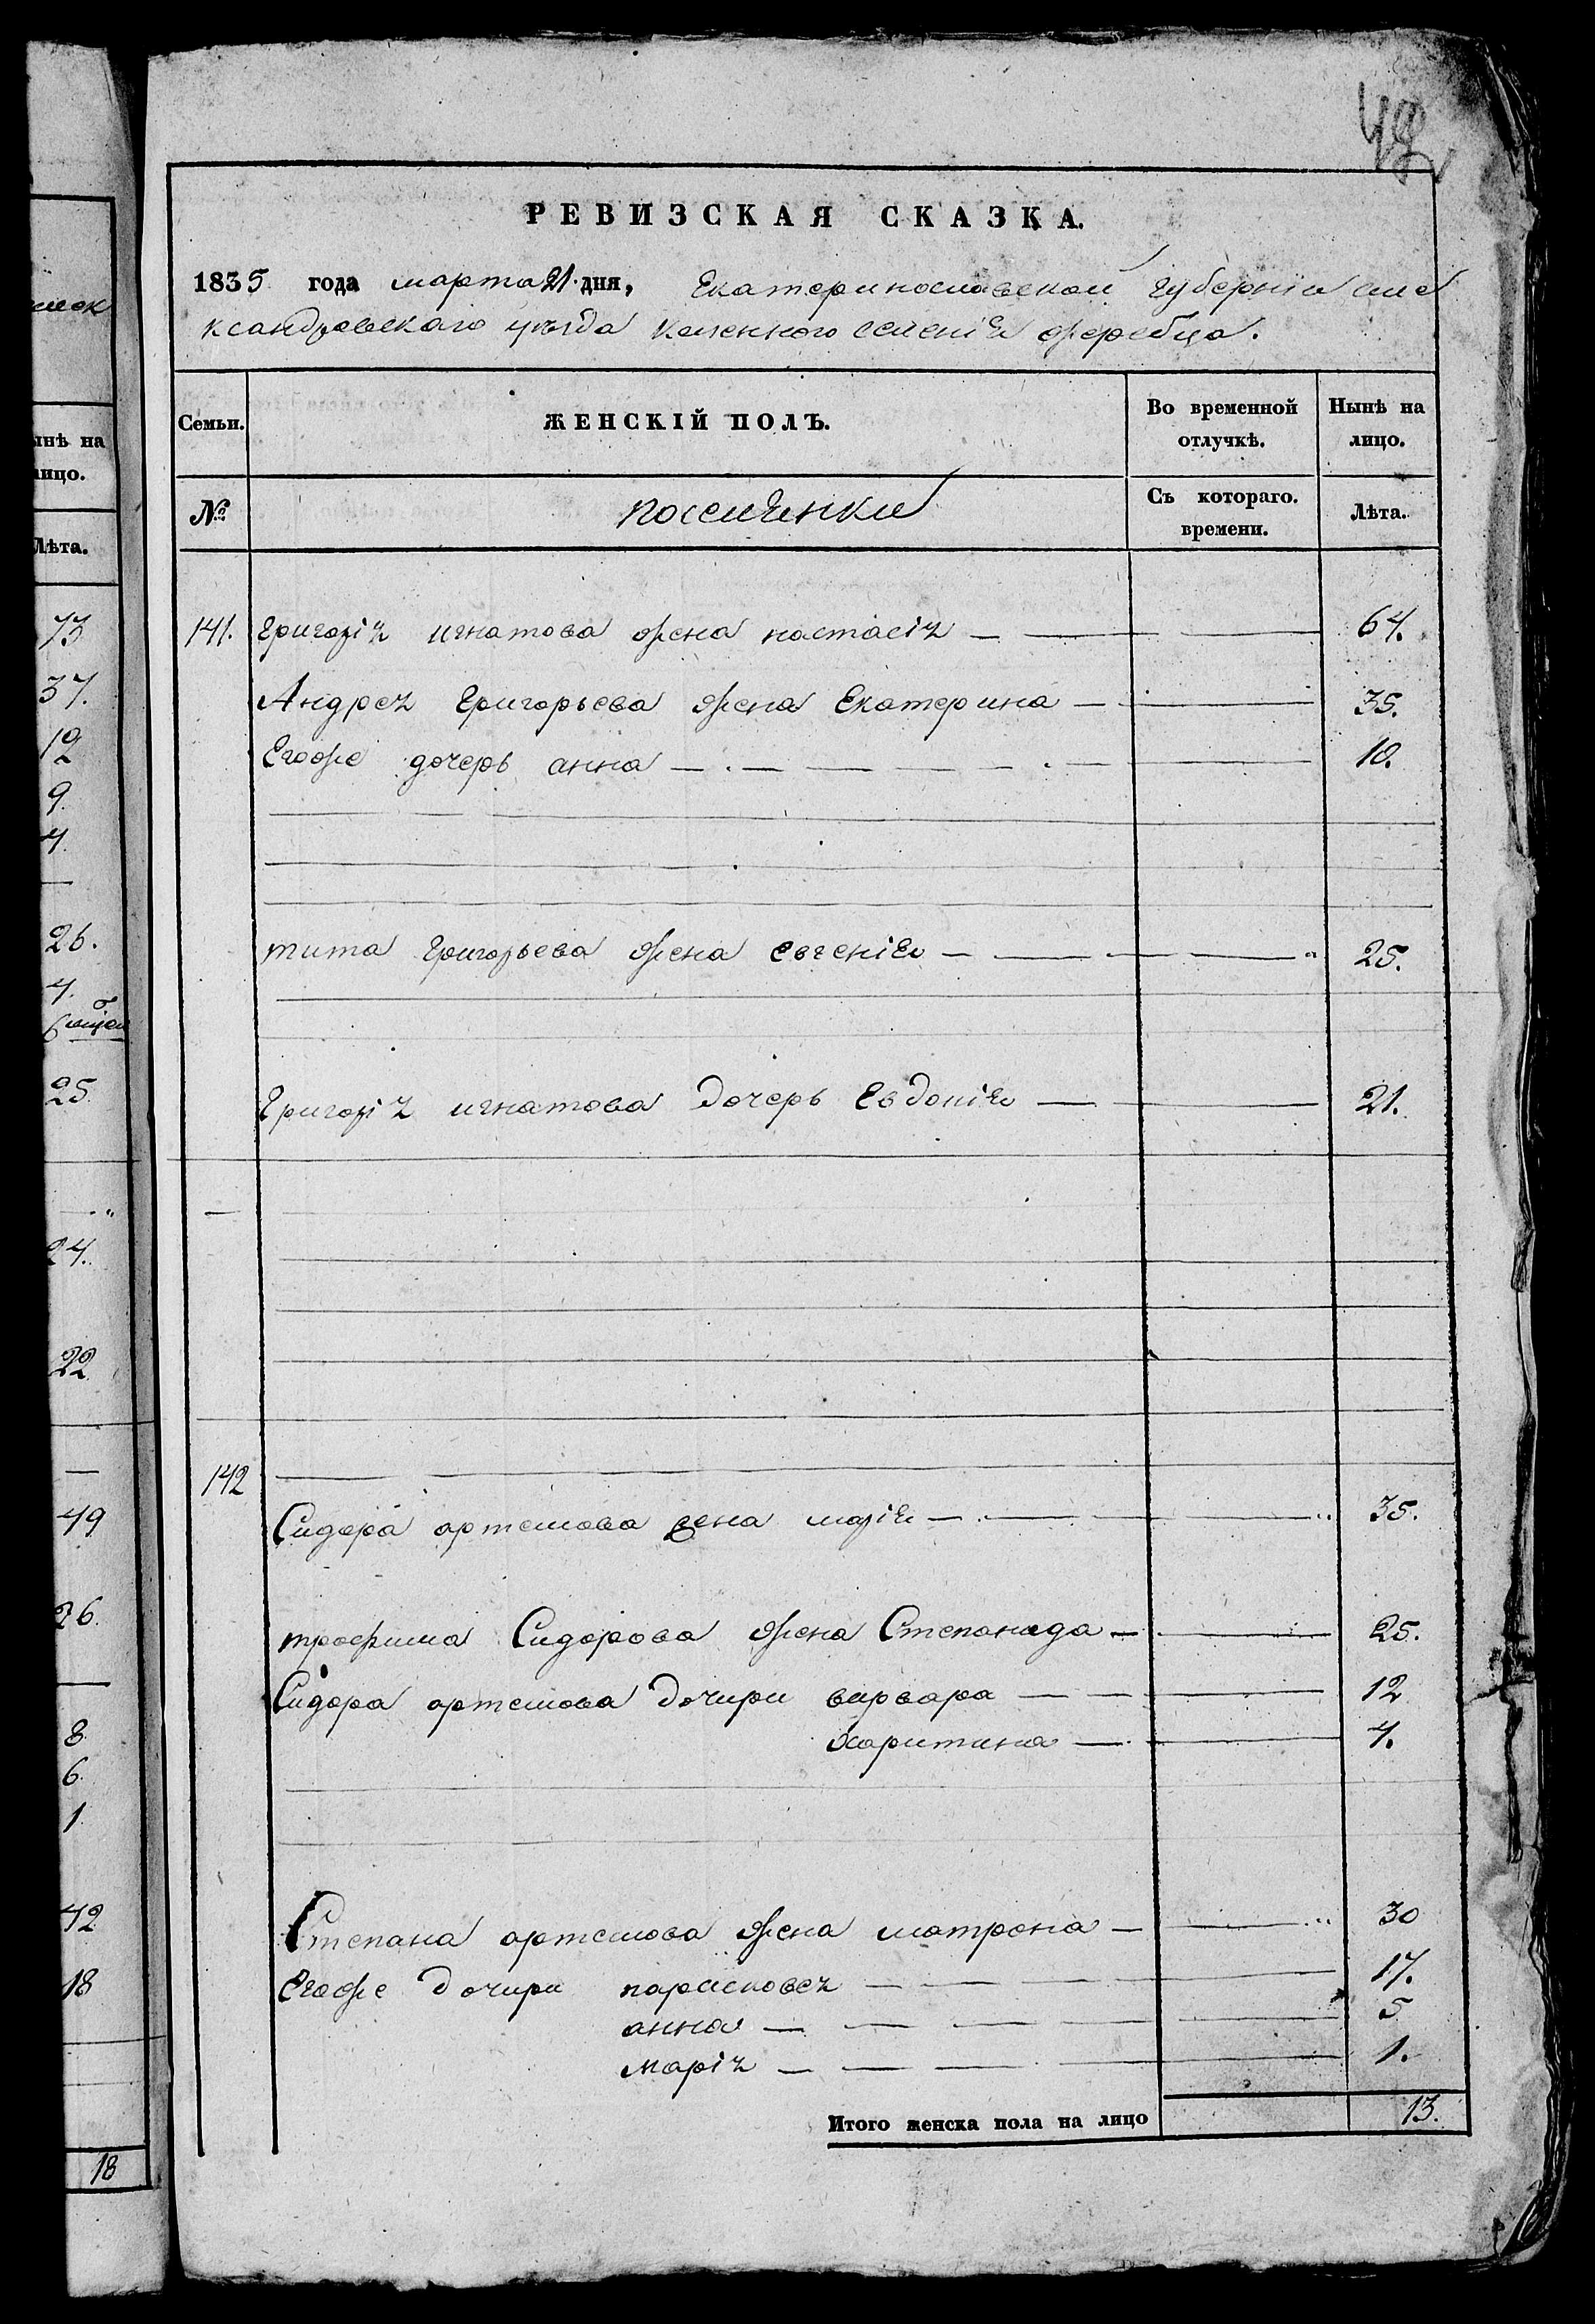 РЕВИЗСКАЯ СКАЗКА.
1835 года марта 21. дня, Екатеринославской губернiи але
ксандровского уѣзда казенного селенiя жеребца.
Семьи.
ЖЕНСКIЙ ПОЛЪ.
Во временной отлучкѣ.
Нынѣ на лицо.
№
поселянки
Съ котораго. времени.
Лѣта.
141. Григорiя игнатова жена настасiя — 64.
Андрея Григорьева жена Екатерина — 35.
Егоже дочерь анна — 10.
тита Григорьева жена евгенiя — 25.
Григорiя игнатова дочерь Евдокiя — 21.
142
Сидора артемова жена марiя — 35.
трофима Сидорова жена Степанида — 25.
Сидора артемова дочири варвара — 12
харитина — 4.
Степана артемова жена матрона — 30
Егоже дочири парасковея — 17.
анна — 5
марiя — 1.
Итого женска пола на лицо 13.
нѣ на
лицо.
Лѣта.
73
37.
12
9.
4.
26.
4.
25.
24.
22
49
26.
8.
6.
1
42
18
18